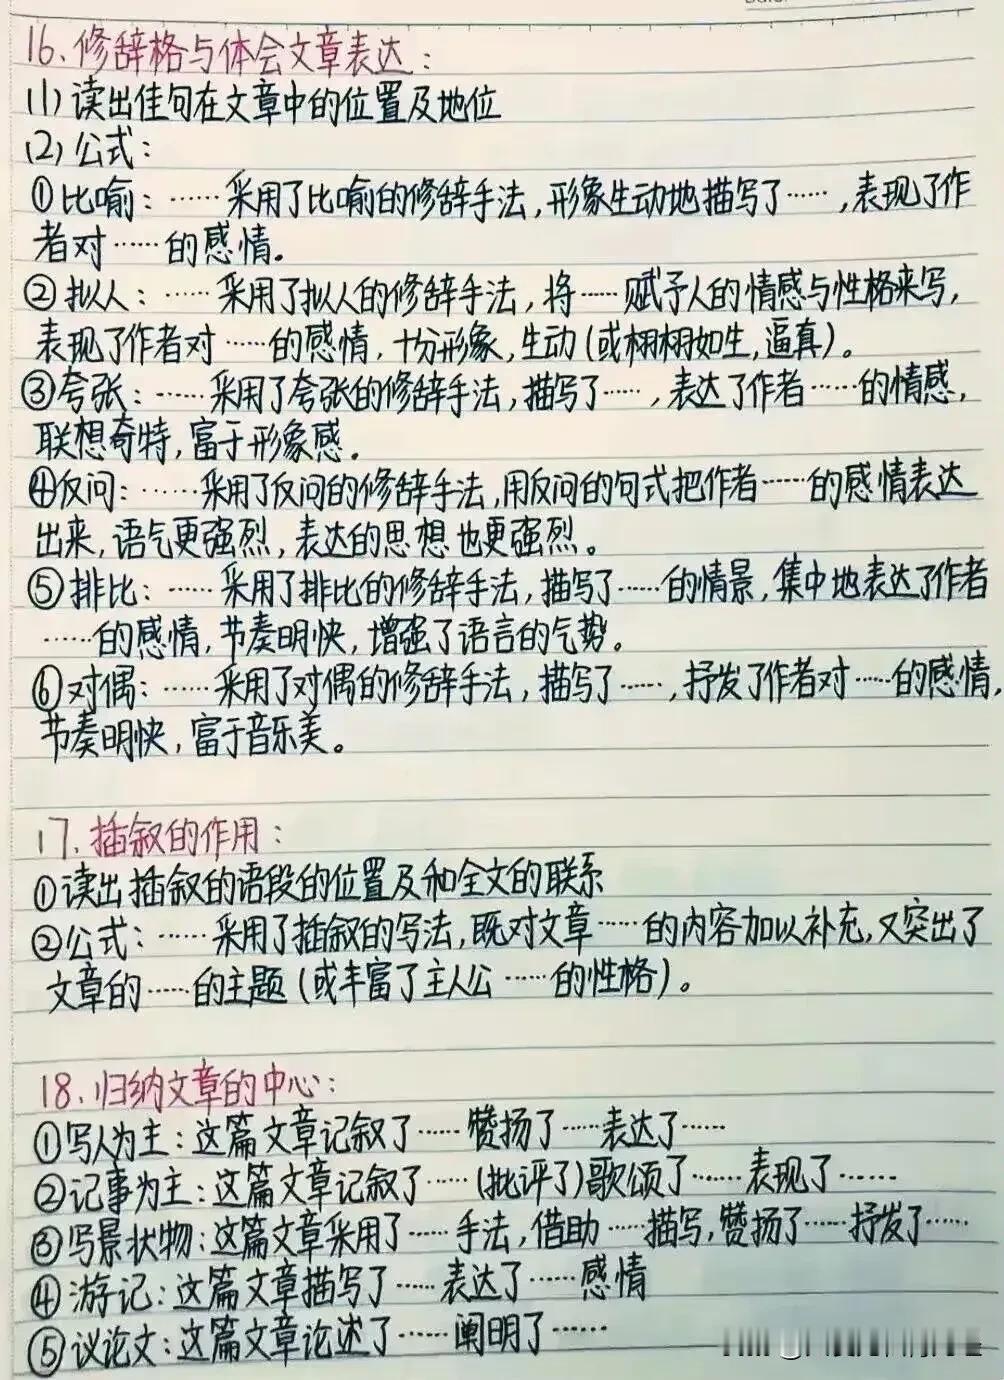 16、修辞格与体会文章表达：
(1) 读出佳句在文章中的位置及地位
(2) 公式：
①比喻：……采用了比喻的修辞手法，形象生动地描写了……，表现了作
者对……的感情。
②拟人：……采用了拟人的修辞手法，将……赋予人的情感与性格来写，
表现了作者对……的感情，十分形象，生动(或栩栩如生，逼真)。
③夸张：……采用了夸张的修辞手法，描写了……，表达了作者……的情感，
联想奇特，富于形象感。
④反问：……采用了反问的修辞手法，用反问的句式把作者……的感情表达
出来，语气更强烈，表达的思想也更强烈。
⑤排比：……采用了排比的修辞手法，描写了……的情景，集中地表达了作者
……的感情，节奏明快，增强了语言的气势。
⑥对偶：……采用了对偶的修辞手法，描写了……，抒发了作者对……的感情，
节奏明快，富于音乐美。
17、插叙的作用：
①读出插叙的语段的位置及和全文的联系
②公式：……采用了插叙的写法，既对文章……的内容加以补充，又突出了
文章的……的主题(或丰富了主人公……的性格)。
18、归纳文章的中心：
①写人为主：这篇文章记叙了……赞扬了……表达了……
②记事为主：这篇文章记叙了……(批评了)歌颂了……表现了……
③写景状物：这篇文章采用了……手法，借助……描写，赞扬了……抒发了……
④游记：这篇文章描写了……表达了……感情
⑤议论文：这篇文章论述了……阐明了……